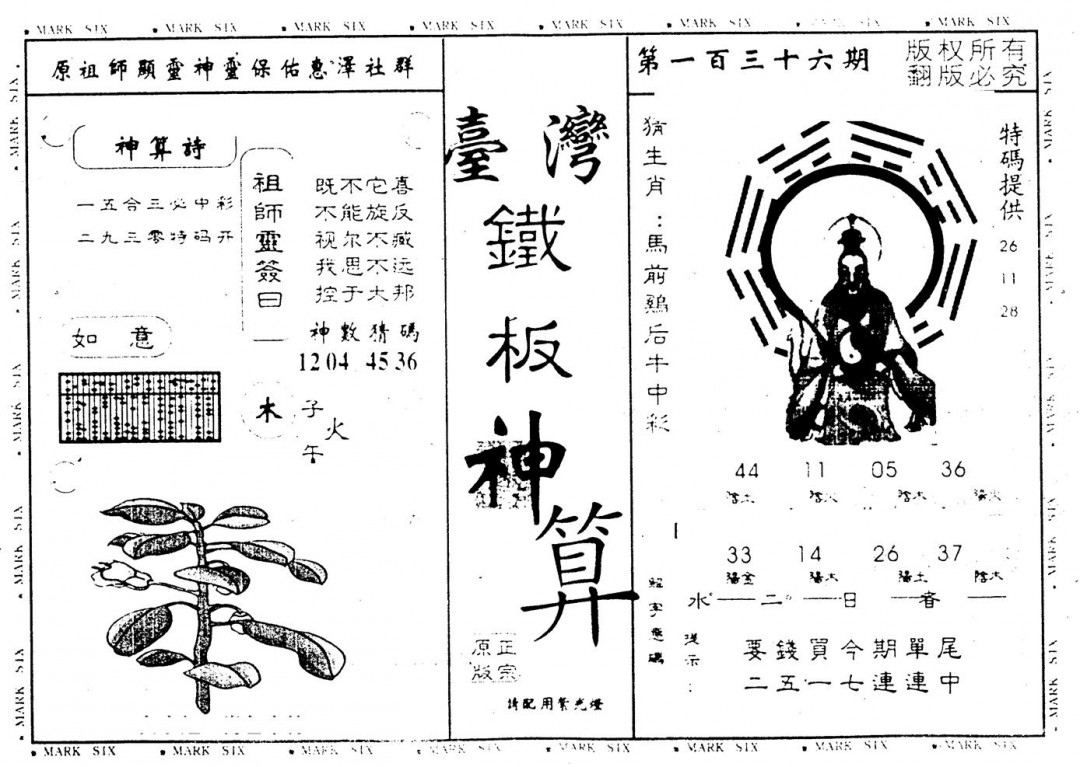 MARK SIX MARK SIX MARK SIX MARK SIX MARK SIX MARK SIX MARK SIX
原祖師顯靈神靈保佑惠澤社群
神算詩
一五合三必中彩
二九三零特码开
祖師靈簽曰
既不它喜
不能旋反
视尔不臧
我思不远
控于大邦
神數猜碼
12 04 45 36
如意
木
子
火
午
臺灣
鐵
板
神
算
正宗
原版
請配用紫光燈
第一百三十六期
版权所有
翻版必究
猜生肖：馬前鷄后牛中彩
特碼提供
26
11
28
44 11 05 36
陰土 陰火 陰木 陽火
33 14 26 37
陽金 陽木 陽土 陰木
水 二 日 春
提示：
要錢買今期單尾
二五一七連連中
MARK SIX MARK SIX MARK SIX MARK SIX MARK SIX MARK SIX MARK SIX MARK SIX